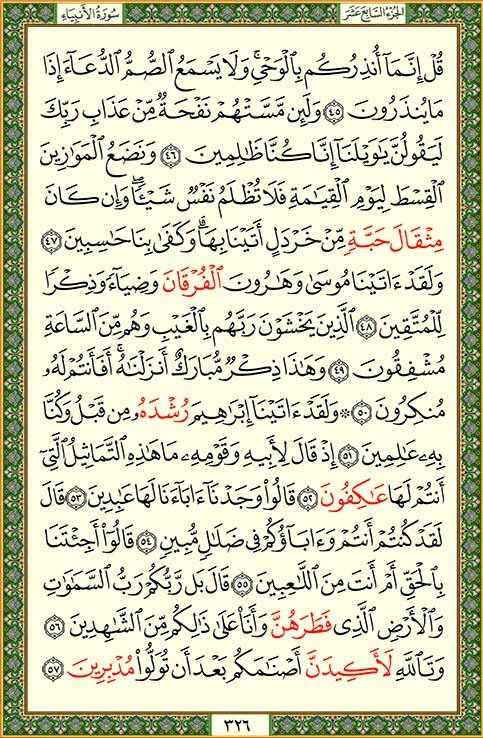 الجزء السابع عشر
سورة الأنبياء
قُلۡ إِنَّمَآ أُنذِرُكُم بِٱلۡوَحۡيِۚ وَلَا يَسۡمَعُ ٱلصُّمُّ ٱلدُّعَآءَ إِذَا
مَا يُنذَرُونَ ٤٥ وَلَئِن مَّسَّتۡهُمۡ نَفۡحَةٞ مِّنۡ عَذَابِ رَبِّكَ
لَيَقُولُنَّ يَٰوَيۡلَنَآ إِنَّا كُنَّا ظَٰلِمِينَ ٤٦ وَنَضَعُ ٱلۡمَوَٰزِينَ
ٱلۡقِسۡطَ لِيَوۡمِ ٱلۡقِيَٰمَةِ فَلَا تُظۡلَمُ نَفۡسٞ شَيۡـٔٗاۖ وَإِن كَانَ
مِثۡقَالَ حَبَّةٖ مِّنۡ خَرۡدَلٍ أَتَيۡنَا بِهَاۗ وَكَفَىٰ بِنَا حَٰسِبِينَ ٤٧
وَلَقَدۡ ءَاتَيۡنَا مُوسَىٰ وَهَٰرُونَ ٱلۡفُرۡقَانَ وَضِيَآءٗ وَذِكۡرٗا
لِّلۡمُتَّقِينَ ٤٨ ٱلَّذِينَ يَخۡشَوۡنَ رَبَّهُم بِٱلۡغَيۡبِ وَهُم مِّنَ ٱلسَّاعَةِ
مُشۡفِقُونَ ٤٩ وَهَٰذَا ذِكۡرٞ مُّبَارَكٌ أَنزَلۡنَٰهُۚ أَفَأَنتُمۡ لَهُۥ
مُنكِرُونَ ٥٠ ۞ وَلَقَدۡ ءَاتَيۡنَآ إِبۡرَٰهِيمَ رُشۡدَهُۥ مِن قَبۡلُ وَكُنَّا
بِهِۦ عَٰلِمِينَ ٥١ إِذۡ قَالَ لِأَبِيهِ وَقَوۡمِهِۦ مَا هَٰذِهِ ٱلتَّمَاثِيلُ ٱلَّتِيٓ
أَنتُمۡ لَهَا عَٰكِفُونَ ٥٢ قَالُواْ وَجَدۡنَآ ءَابَآءَنَا لَهَا عَٰبِدِينَ ٥٣ قَالَ
لَقَدۡ كُنتُمۡ أَنتُمۡ وَءَابَآؤُكُمۡ فِي ضَلَٰلٖ مُّبِينٖ ٥٤ قَالُوٓاْ أَجِئۡتَنَا
بِٱلۡحَقِّ أَمۡ أَنتَ مِنَ ٱللَّٰعِبِينَ ٥٥ قَالَ بَل رَّبُّكُمۡ رَبُّ ٱلسَّمَٰوَٰتِ
وَٱلۡأَرۡضِ ٱلَّذِي فَطَرَهُنَّ وَأَنَا۠ عَلَىٰ ذَٰلِكُم مِّنَ ٱلشَّٰهِدِينَ ٥٦
وَتَٱللَّهِ لَأَكِيدَنَّ أَصۡنَٰمَكُم بَعۡدَ أَن تُوَلُّواْ مُدۡبِرِينَ ٥٧
٣٢٦